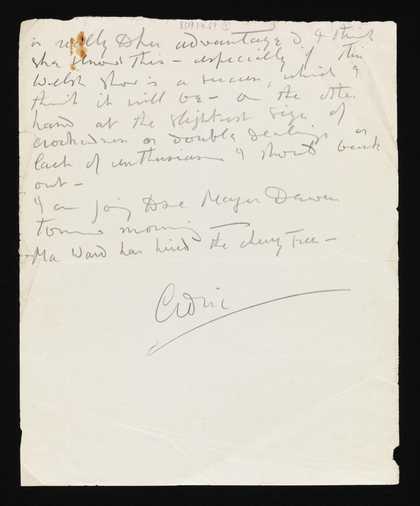 is really to her advantage & I think
she knows this – especially if this
Welsh show is a success, which I
think it will be – on the other
hand at the slightest sign of
crookedness or double dealings or
lack of enthusiasm I should back
out –
I am going to see Major Dawson
tomorrow morning
Ma Ward has hired the cherry Tree –
Cedric